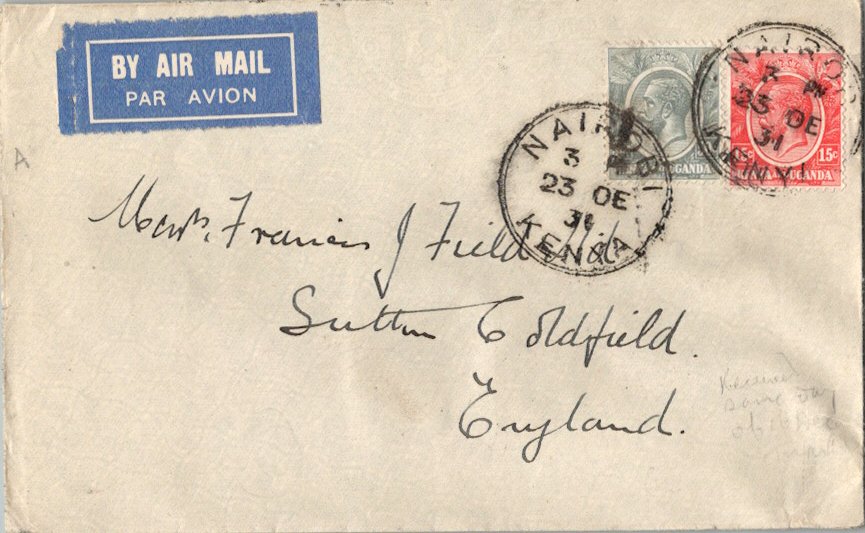 BY AIR MAIL
PAR AVION
NAIROBI
3 P
23 DE
31
KENYA
NAIROB
3 P
23 DE
31
KENY
UGANDA
15c
15c
KENYA UGANDA
A
Messrs. Francis J Field Ltd.
Sutton Coldfield.
England.
Received
same day